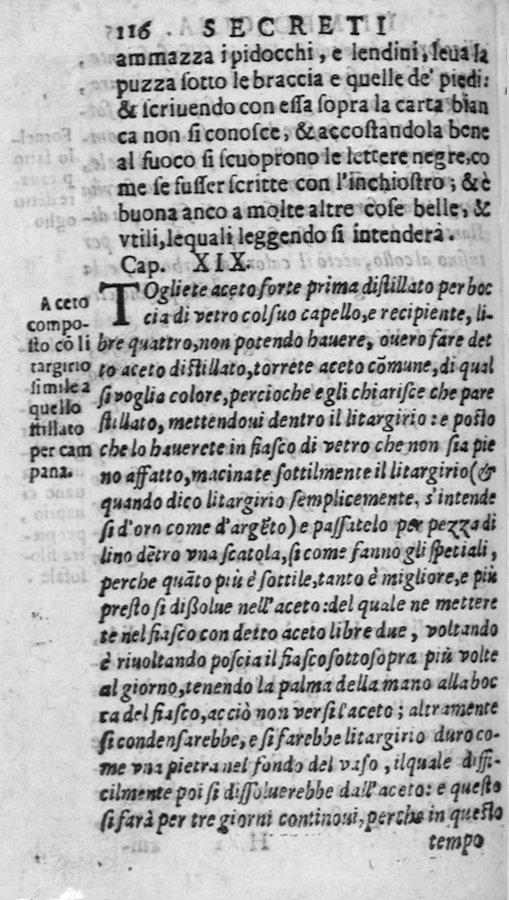 116 . SECRETI
ammazza i pidocchi, e lendini, leua la
puzza sotto le braccia e quelle de' piedi:
& scriuendo con essa sopra la carta bian
ca non si conosce, & accostandola bene
al fuoco si scuoprono le lettere negre, co
me se fusser scritte con l'inchiostro; & è
buona anco a molte altre cose belle, &
vtili, lequali leggendo si intenderà.
Cap. XIX.
TOgliete aceto forte prima distillato per boc
cia di vetro col suo capello, e recipiente, li-
bre quattro, non potendo hauere, ouero fare det
to aceto distillato, torrete aceto cõmune, di qual
si voglia colore, percioche egli chiarisce che pare
stillato, mettendoui dentro il litargirio: e posto
che lo hauerete in fiasco di vetro che non sia pie
no affatto, macinate sottilmente il litargirio (&
quando dico litargirio semplicemente, s'intende
si d'oro come d'argẽto) e passatelo per pezza di
lino dẽtro vna scatola, si come fanno gli spetiali,
perche quãto più è sottile, tanto è migliore, e più
presto si dissolue nell'aceto: del quale ne mettere
te nel fiasco con detto aceto libre due, voltando
è riuoltando poscia il fiasco sottosopra più volte
al giorno, tenendo la palma della mano alla boc
ca del fiasco, acciò non versi l'aceto; altramente
si condensarebbe, e si farebbe litargirio duro co-
me vna pietra nel fondo del vaso, il quale diffi-
cilmente poi si dissoluerebbe dall'aceto: e questo
si farà per tre giorni continoui, perche in questo
tempo
Aceto
compo-
sto cõ li
targirio
simile a
quello
stillato
per cam
pana.